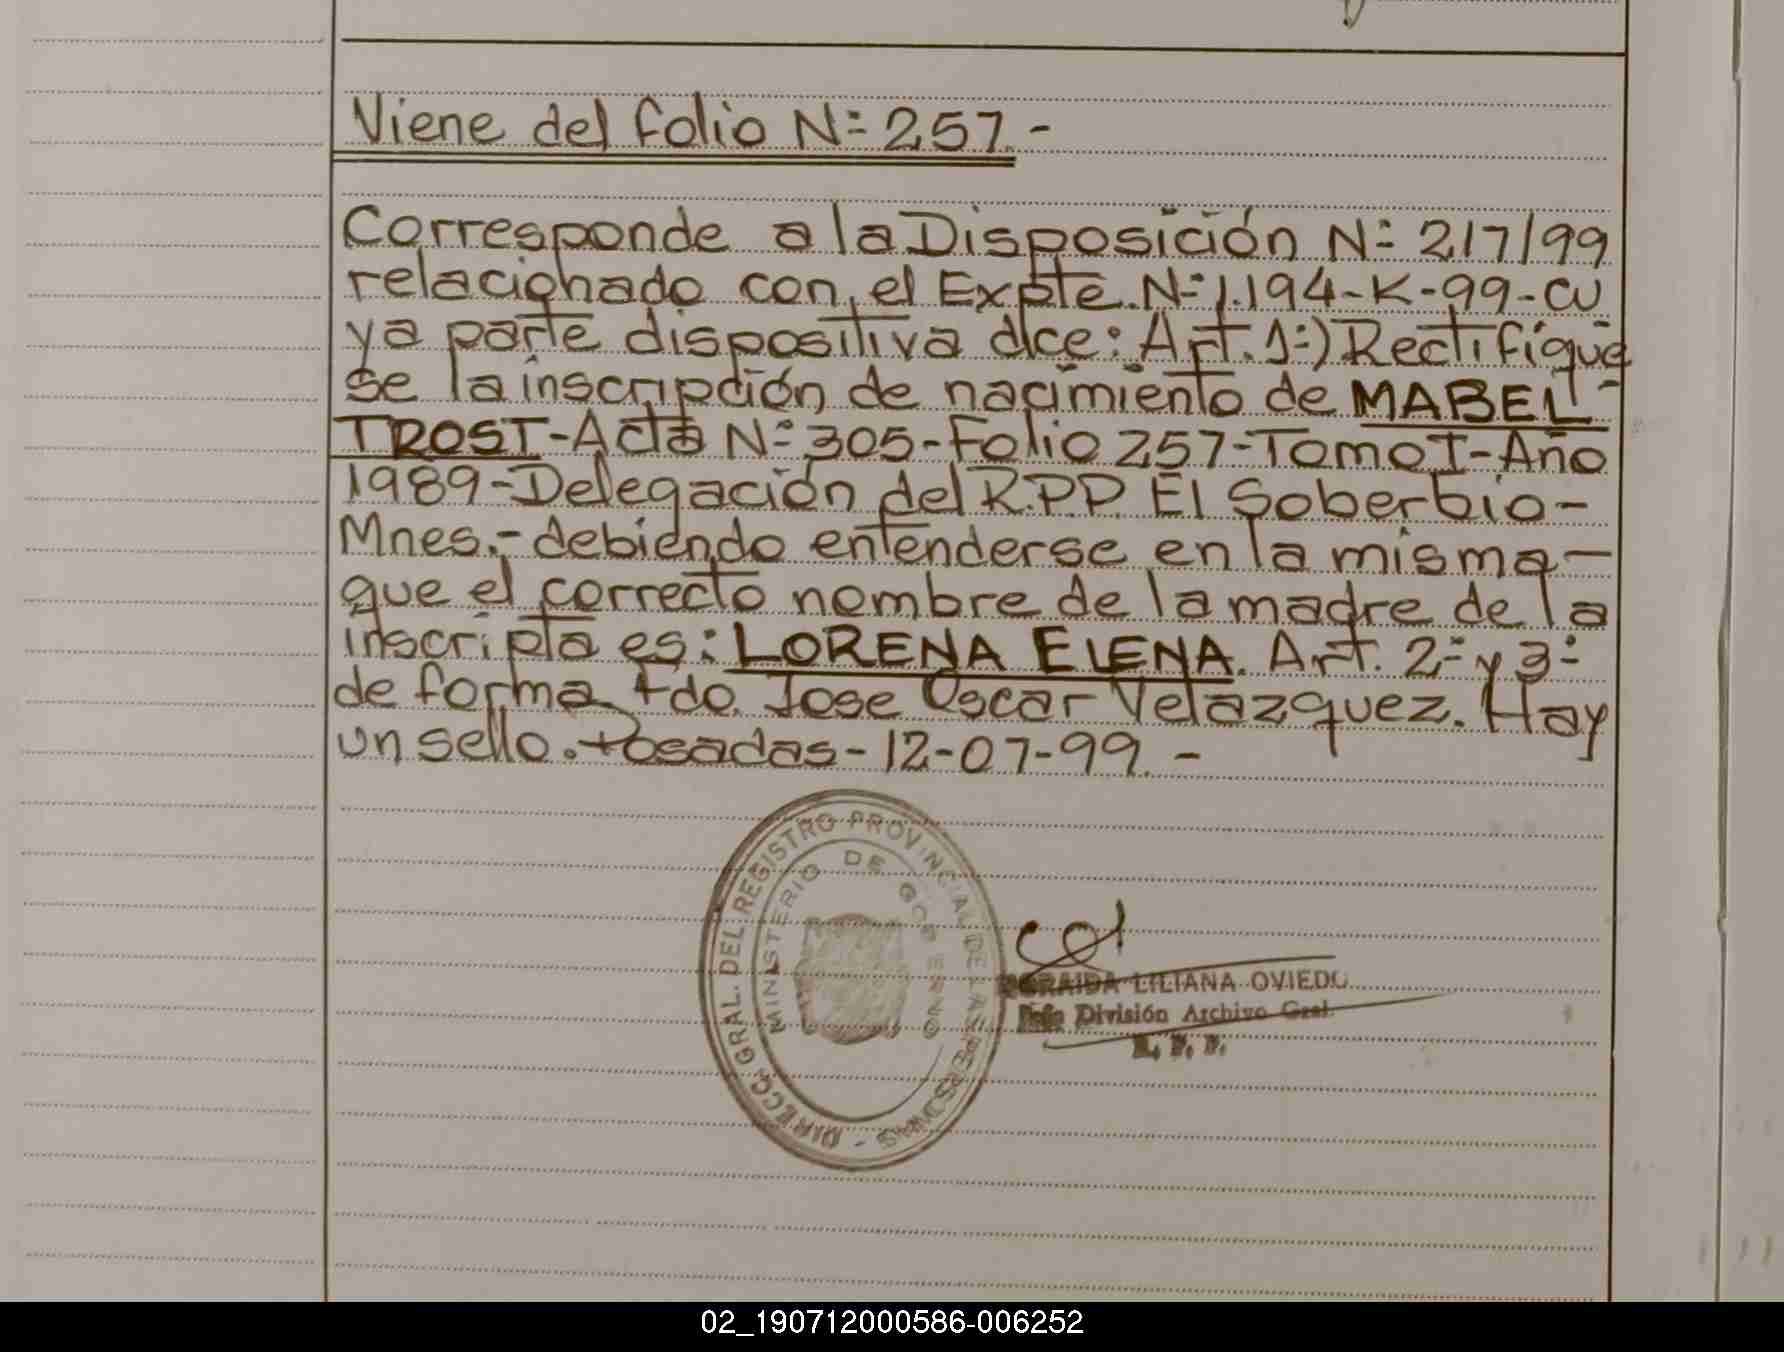 Viene del folio N= 257.-
Corresponde a la Disposición N= 217/99
relacionado con el Expte. N= 1.194-K-99-cu
ya parte dispositiva dice: Art. 1=) Rectifíque
se la inscripción de nacimiento de MABEL-
TROST-Acta N= 305-Folio 257-Tomo I-Año
1989-Delegación del R.P.P. El Soberbio-
Mnes.-debiendo entenderse en la misma-
que el correcto nombre de la madre de la
inscripta es: LORENA ELENA. Art. 2= y 3=
de forma Fdo. Jose Oscar Velazquez. Hay
un sello. Posadas-12-07-99.-
DIRECC. GRAL. DEL REGISTRO PROVINCIAL DE LAS PERSONAS -
MINISTERIO DE GOBIERNO
LILIANA OVIEDO
Jefa División Archivo Gral.
R. P. P.
02_190712000586-006252